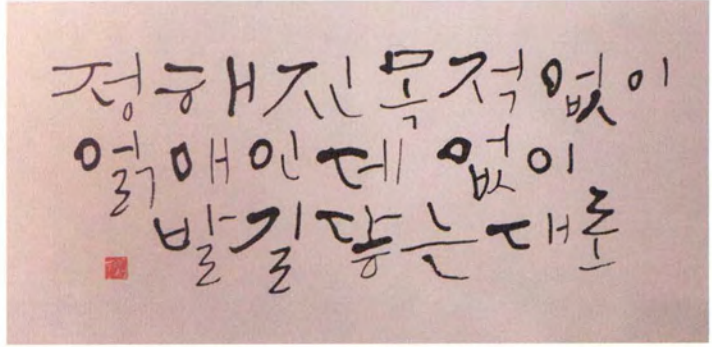 정해진 목적 없이
얽애인데 없이
발길 닿는대로